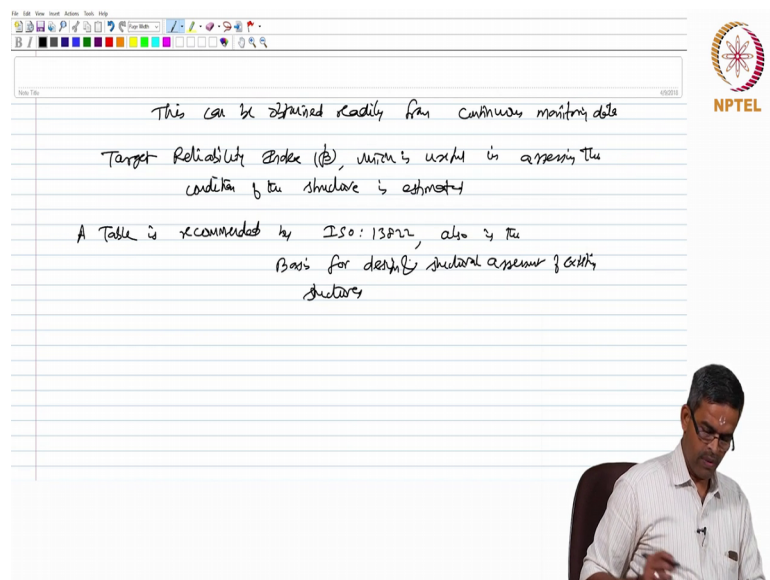 File Edit View Insert Actions Tools Help
Page Width
B I
Note Title
4/9/2018
NPTEL
This can be obtained readily from continuous monitoring data
Target Reliability Index (β), which is useful in assessing the
condition of the structure is estimated
A Table is recommended by ISO: 13822, also is the
Basis for design & structural assessment of existing
structures